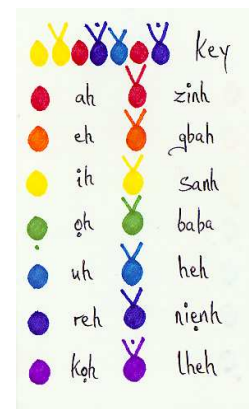 key
ah zinh
eh gbah
ih sanh
ọh baba
uh heh
reh niẹnh
kọh lheh